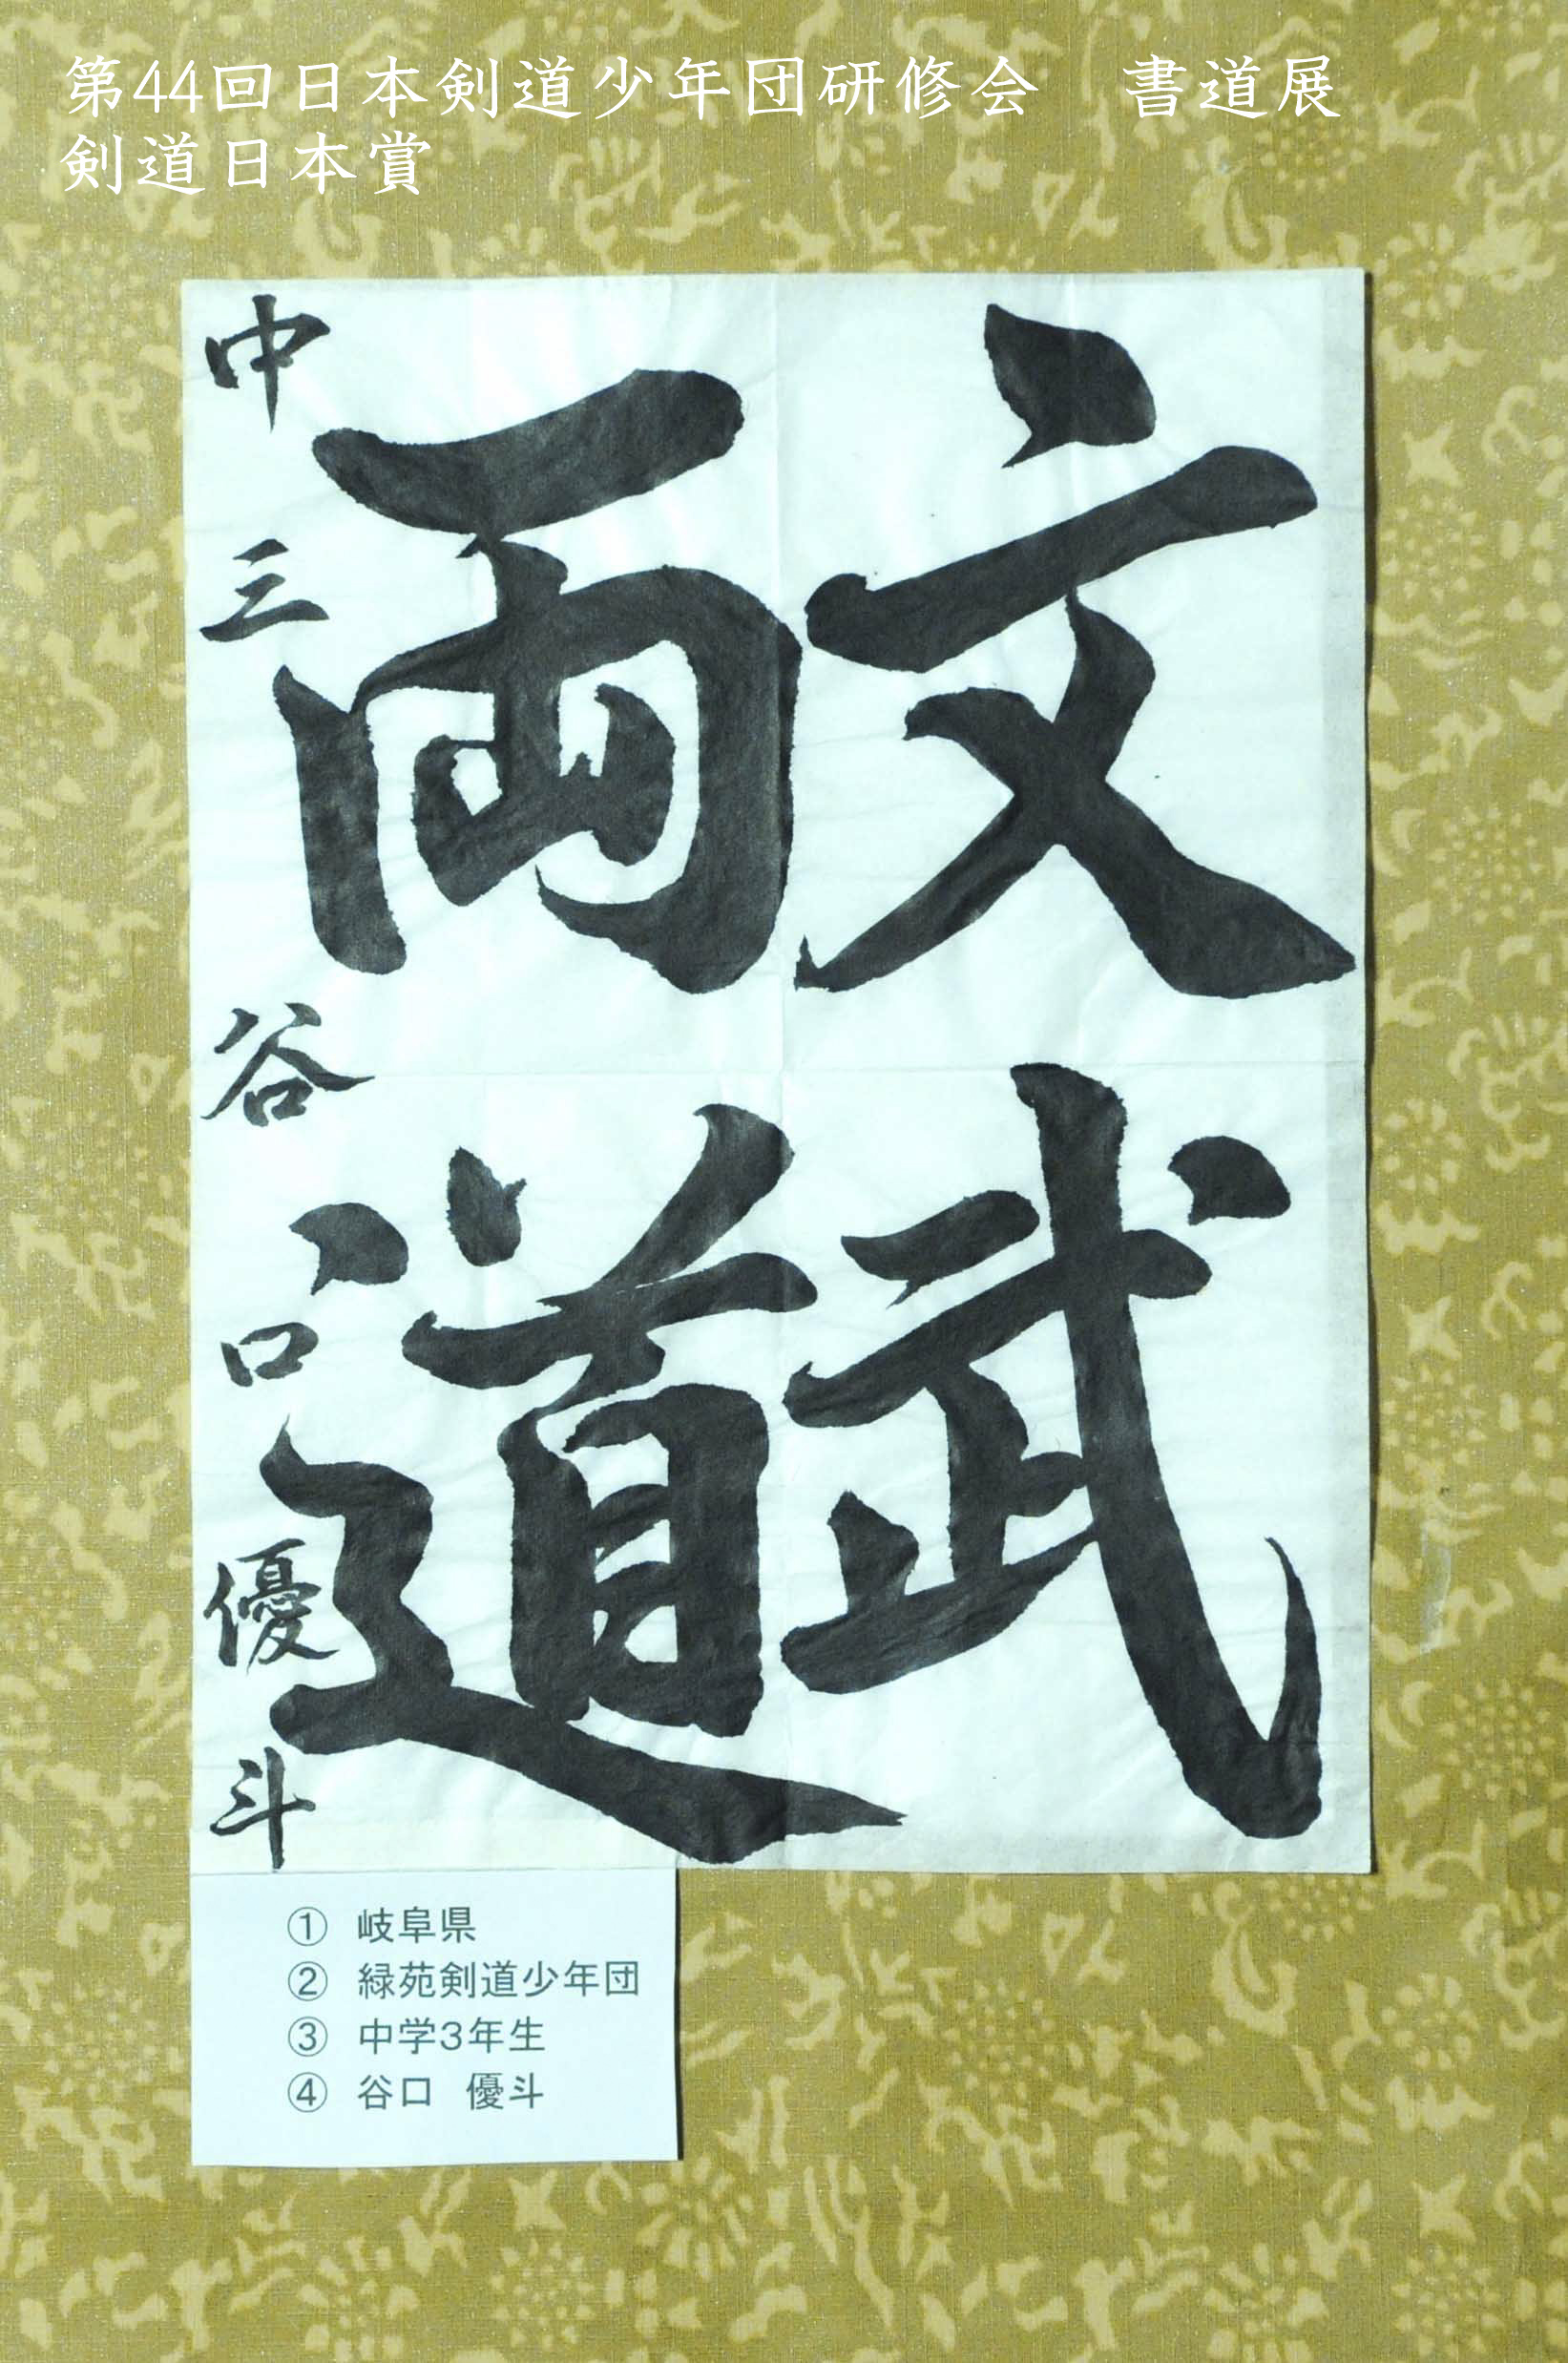 第44回日本剣道少年団研修会　書道展
剣道日本賞
文武
両道
中三 谷口優斗
① 岐阜県
② 緑苑剣道少年団
③ 中学3年生
④ 谷口　優斗